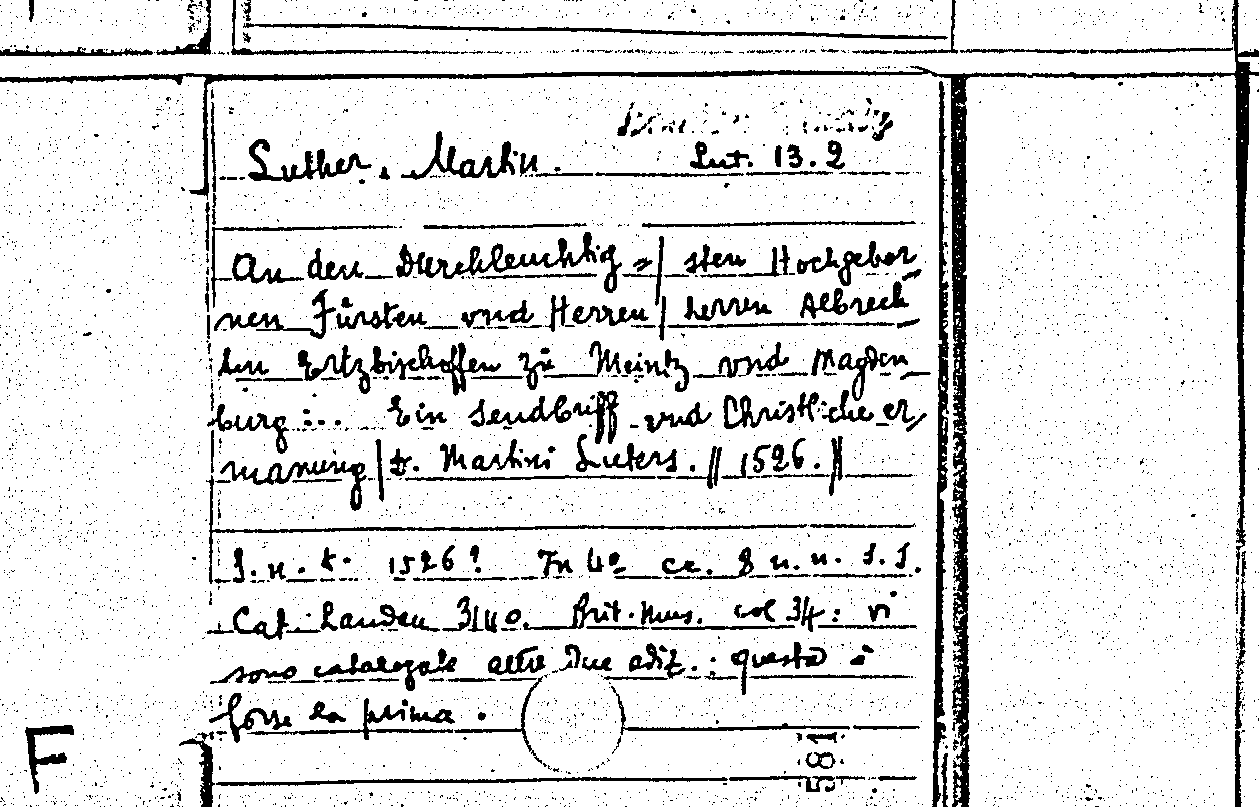 Luther, Martin.
Lut. 13.2
An den Durchleuchtig =| sten Hochgebor
nen Fürsten vnd Herren| herren Albrech
ten Ertzbischoffen zů Meintz vnd Magden
burg :.. Ein sendbriff vnd Christliche er
manung| D. Martini Luters. || 1526. ||
S. n. t. 1526? In 4º cc. 8 n. n. s. s.
Cat. Lauden 3140. Brit. Mus. col 34: vi
sono catalogate altre due ediz.: questa è
forse la prima.
581
F